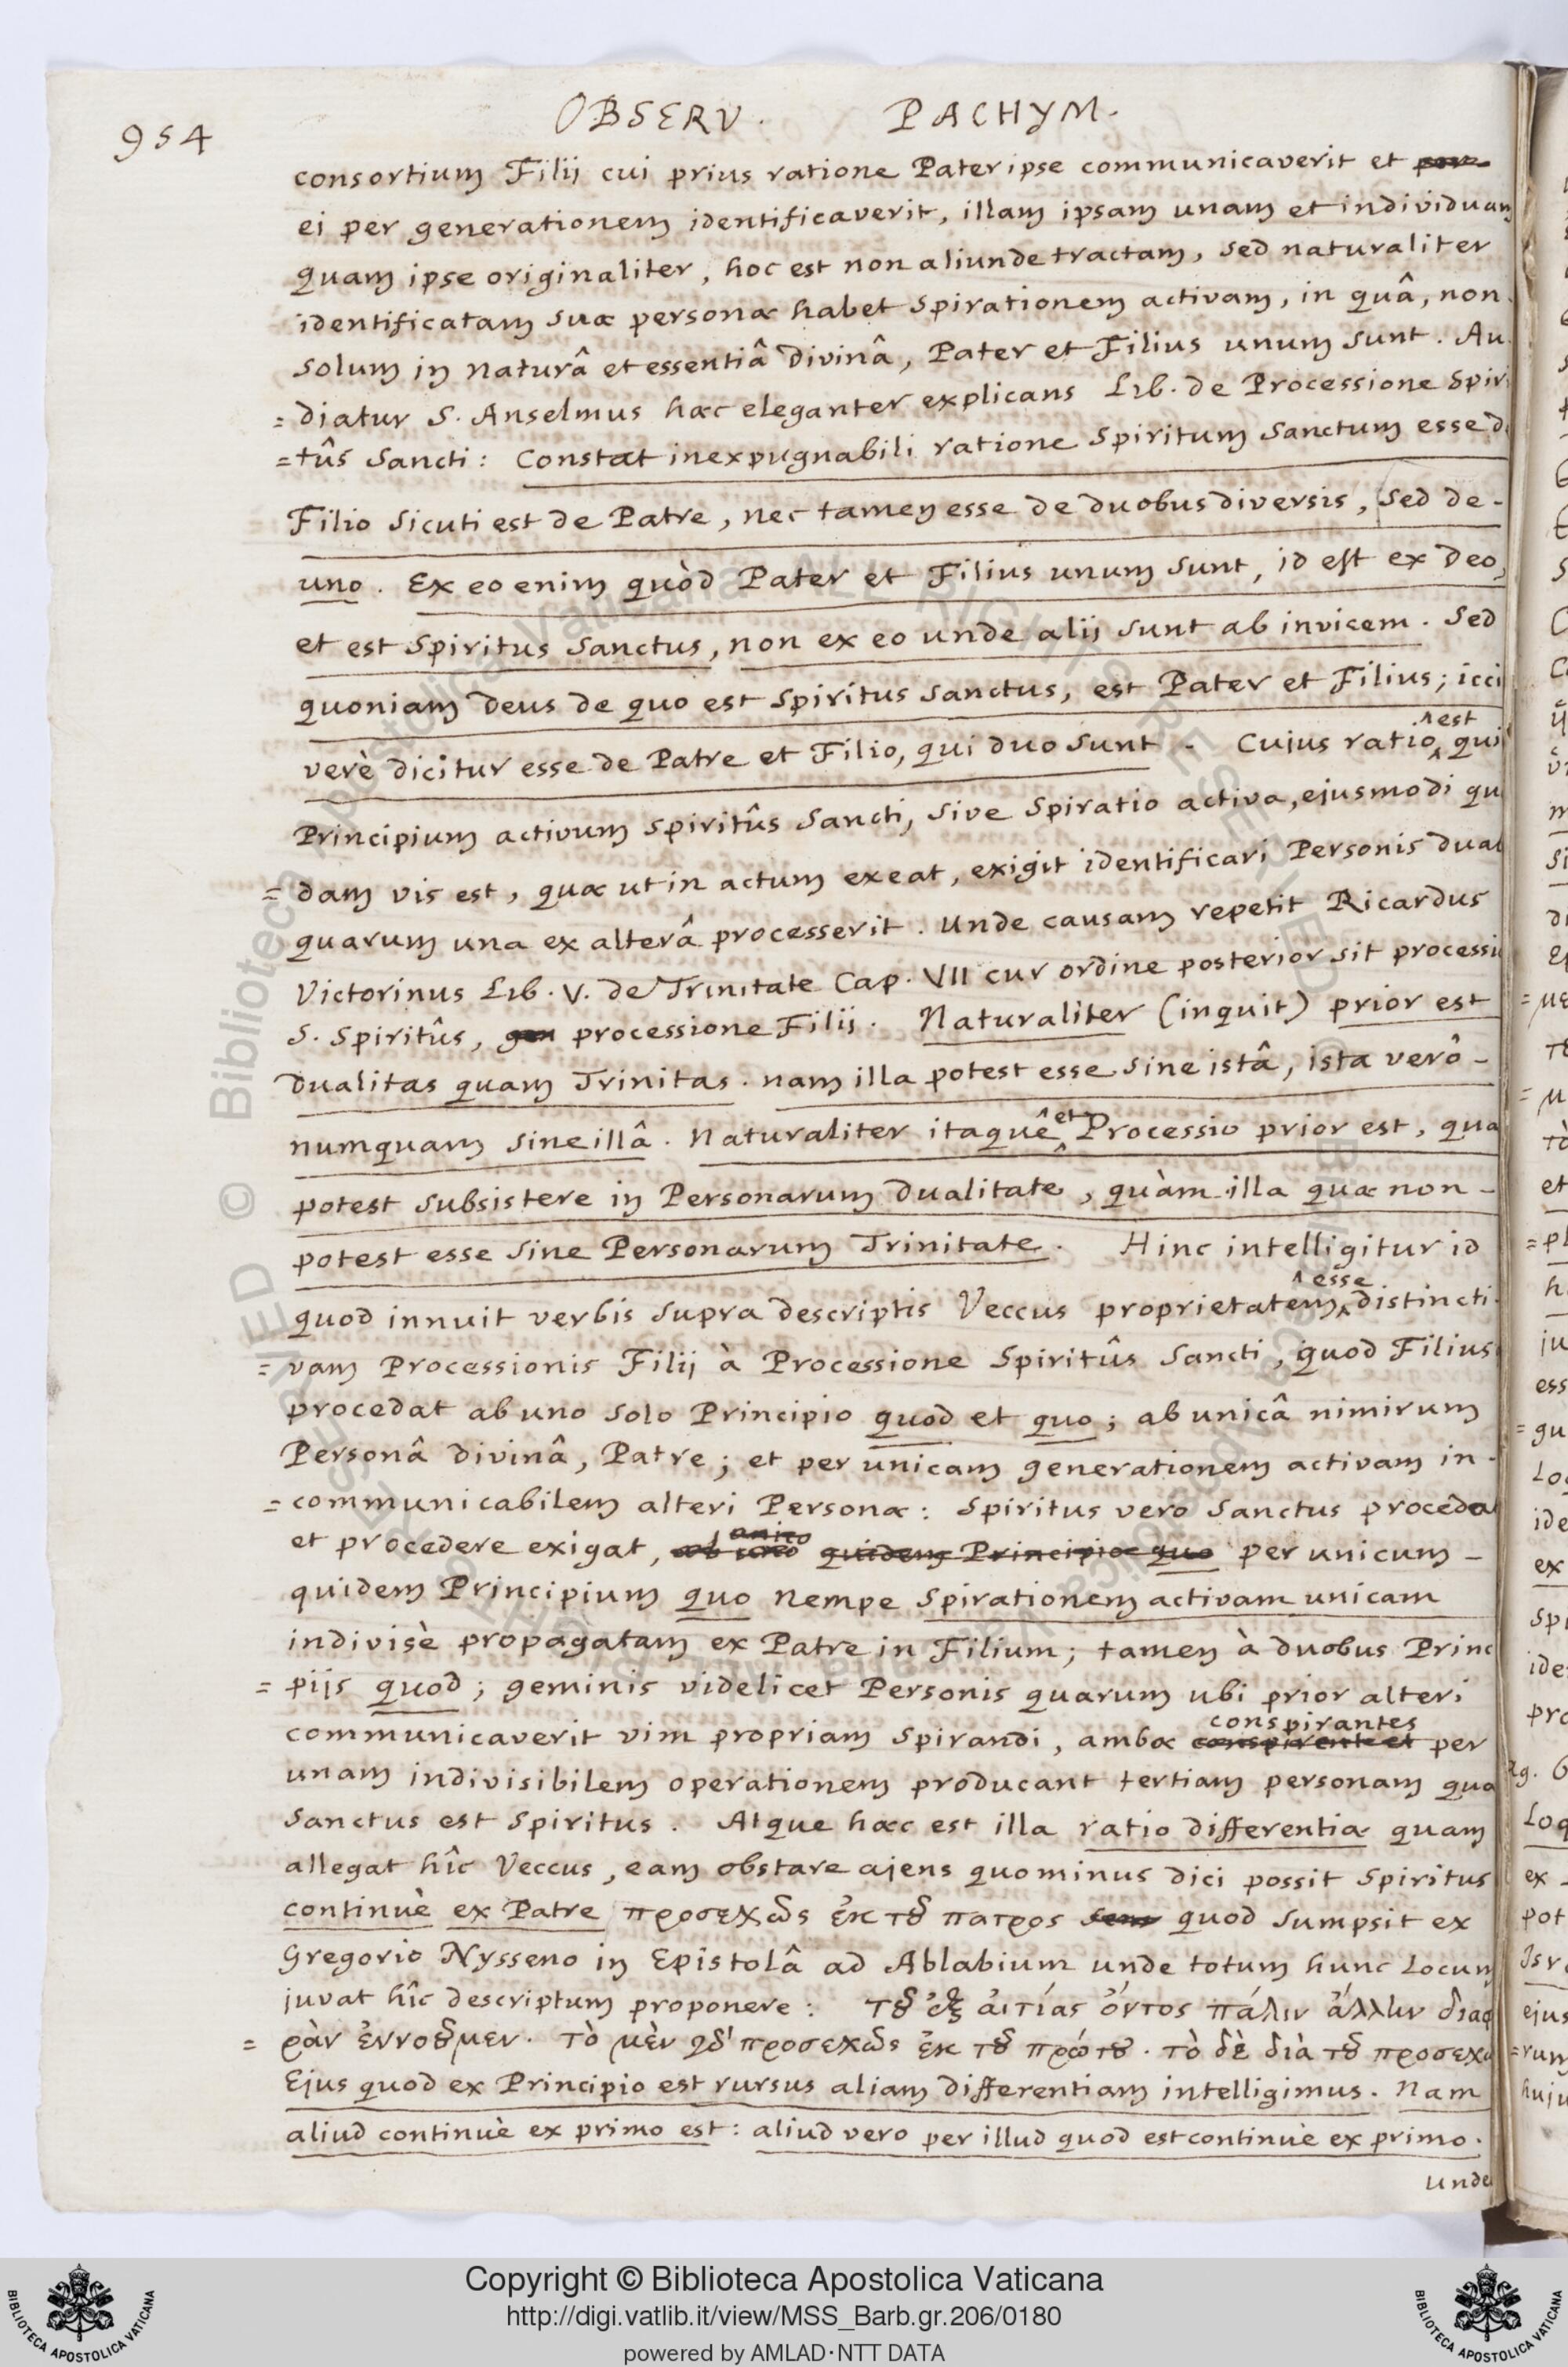 954
OBSERV. PACHYM.
consortium Filij cui prius ratione Pater ipse communicaverit et
ei per generationem identificaverit, illam ipsam unam et individuam
quam ipse originaliter, hoc est non aliunde tractam, sed naturaliter
identificatam suæ personæ habet spirationem activam, in quâ, non
solum in naturâ et essentiâ divinâ, Pater et Filius unum sunt. Au
=diatur S. Anselmus hæc eleganter explicans Lib. de Processione Spiri
=tûs Sancti: Constat inexpugnabili ratione Spiritum Sanctum esse d
Filio sicuti est de Patre, nec tamen esse de duobus diversis, sed de-
uno. Ex eo enim quòd Pater et Filius unum sunt, id est ex Deo,
et est Spiritus Sanctus, non ex eo unde alij sunt ab invicem. Sed
quoniam Deus de quo est Spiritus Sanctus, est Pater et Filius; icci
verè dicitur esse de Patre et Filio, qui duo sunt. Cujus ratio est qui
Principium activum Spiritûs Sancti, sive Spiratio activa, ejusmodi qu
=dam vis est, quæ ut in actum exeat, exigit identificari Personis dua
quarum una ex alterâ processerit. Unde causam repetit Ricardus
Victorinus Lib. V. de Trinitate Cap. VII cur ordine posterior sit processi
S. Spiritûs, processione Filij. Naturaliter (inquit) prior est
dualitas quam Trinitas. nam illa potest esse sine istâ, ista verô-
numquam sine illâ. Naturaliter itaquê et Processio prior est, quæ
potest subsistere in Personarum dualitate, quàm illa quæ non-
potest esse sine Personarum Trinitate. Hinc intelligitur id
quod innuit verbis supra descriptis Veccus proprietatem esse distincti
=vam Processionis Filij à Processione Spiritûs Sancti, quod Filius
procedat ab uno solo Principio quod et quo; ab unicâ nimirum
Personâ divinâ, Patre; et per unicam generationem activam in-
=communicabilem alteri Personæ: Spiritus vero Sanctus proceda
et procedere exigat, ab unico quidem Principio quo per unicum-
quidem Principium quo nempe Spirationem activam unicam
indivisè propagatam ex Patre in Filium; tamen à duobus Princ
=pijs quod; geminis videlicet Personis quarum ubi prior alteri
communicaverit vim propriam spirandi, ambæ conspirantes per
unam indivisibilem operationem producant tertiam personam quæ
Sanctus est Spiritus. Atque hæc est illa ratio differentiæ quam
allegat hîc Veccus, eam obstare ajens quominus dici possit Spiritus
continuè ex Patre προσεχῶς ἐκ τοῦ πατρος quod sumpsit ex
Gregorio Nysseno in Epistolâ ad Ablabium unde totum hunc locum
juvat hîc descriptum proponere: τοῦ ἐξ αἰτίας ὄντος πάλιν ἄλλην διαφ
=ρὰν ἐννοοῦμεν. τὸ μὲν γὸ προσεχῶς ἐκ τοῦ πρώτου. τὸ δὲ διὰ τοῦ προσεχῶ
Ejus quod ex Principio est rursus aliam differentiam intelligimus. Nam
aliud continuè ex primo est: aliud vero per illud quod est continuè ex primo.
unde
Copyright © Biblioteca Apostolica Vaticana
http://digi.vatlib.it/view/MSS_Barb.gr.206/0180
powered by AMLAD·NTT DATA
BIBLIOTECA APOSTOLICA VATICANA
BIBLIOTECA APOSTOLICA VATICANA